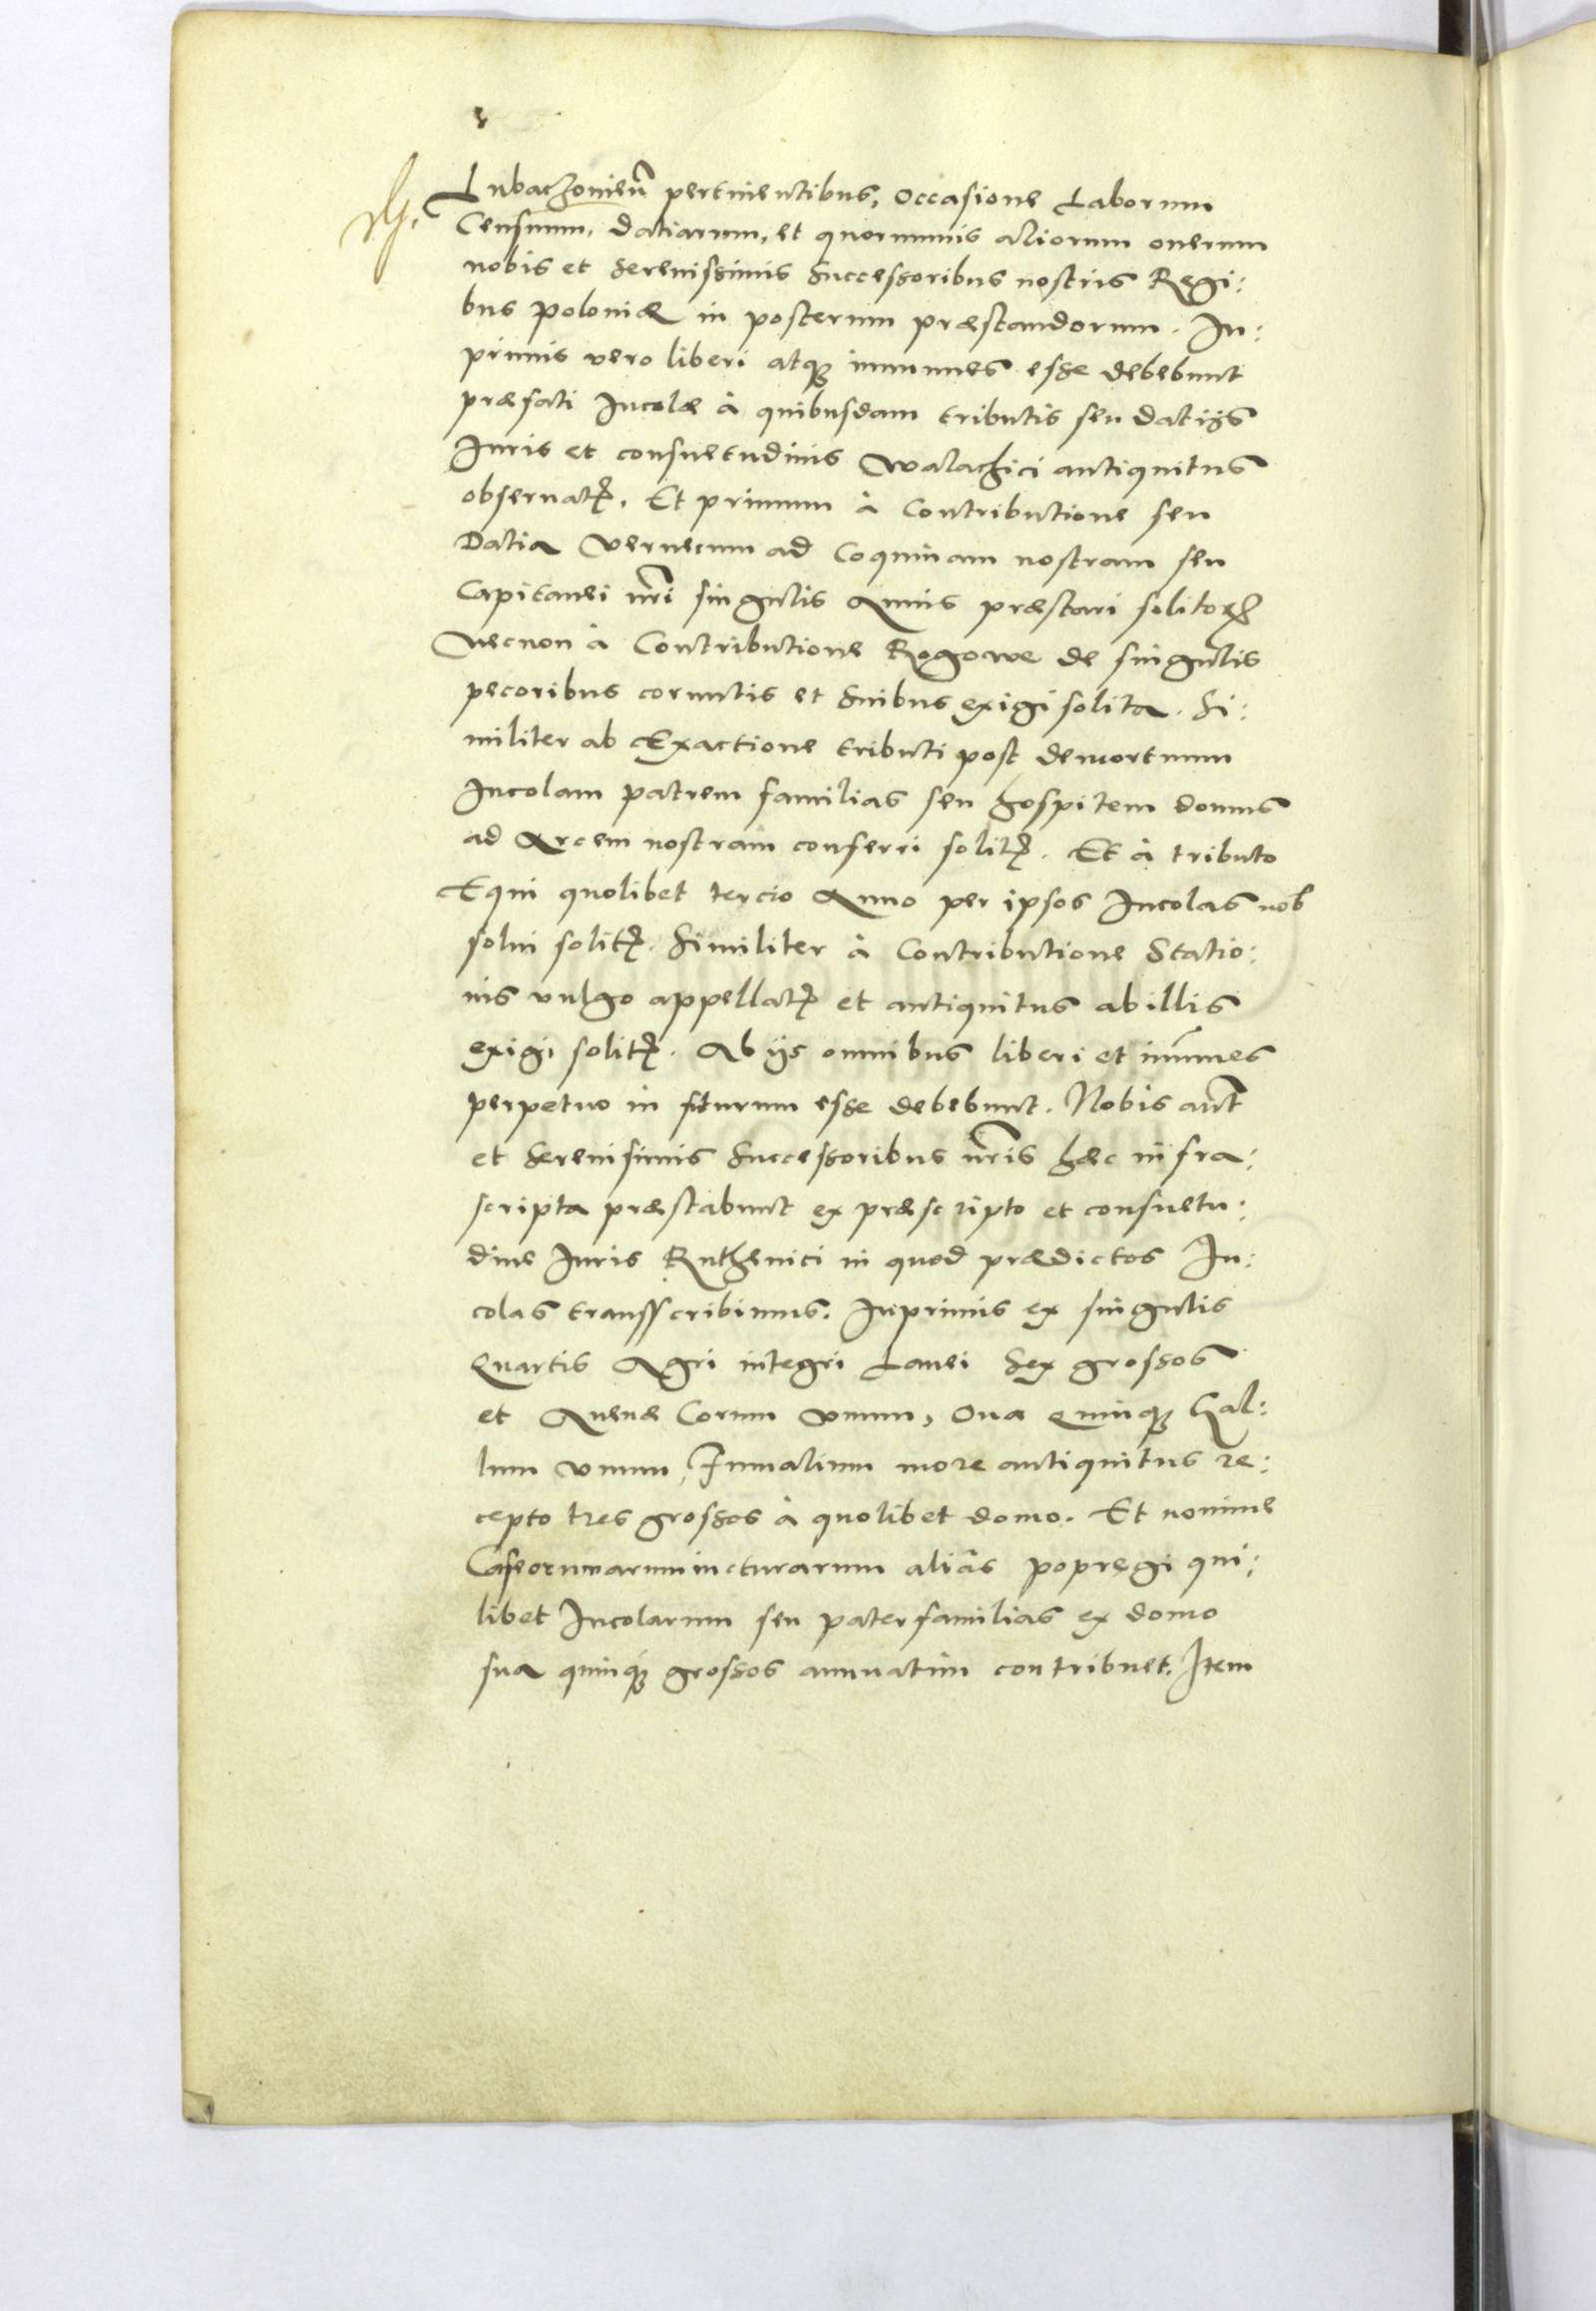 Lubaczouien̄ pertinentibus, Occasione Laborum
Censuum, datiarum, et quorumuis aliorum onerum
nobis et Serenissimis Successoribus nostris Regi:
bus Poloniæ in posterum præstandorum. In:
primis vero liberi atq3 immunes esse debebunt
præfati Incolæ à quibusdam tributis seu datijs
Iuris et consuetudinis Walachici antiquitus
obseruatꝭ. Et primum à Contributione seu
Datia Veruecum ad Coquinam nostram seu
Capitanei nr̄i singulis Annis præstari solitoꝝ
Necnon à Contributione Rogowe de singulis
pecoribus cornutis et Suibus exigi solita. Si:
militer ab Exactione tributi post demortuum
Incolam patrem familias seu hospitem domus
ad Arcem nostram conferri solitꝭ. Et à tributo
Equi quolibet tercio Anno per ipsos Incolas nob
solui solitꝭ. Similiter à Contributione Statio:
nis vulgo appellatꝭ et antiquitus ab illis
exigi solitꝭ. Ab ijs omnibus liberi et im̄unes
perpetuo in futurum esse debebunt. Nobis aut̄
et Serenissimis Successoribus nr̄is hæc infra:
scripta præstabunt ex præscripto et consuetu:
dine Iuris Ruthenici in quod prædictos In:
colas transscribimus. Inprimis ex singulis
Quartis Agri integri Lanei Sex grossos
et Auenæ Corum vnum, Oua Quinq3 Gal:
lum vnum, Fumalium more antiquitus re:
cepto tres grossos à quolibet domo. Et nomine
aliàs popręgi qui:
libet Incolarum seu paterfamilias ex domo
sua quinq3 grossos annuatim contribuet. Item